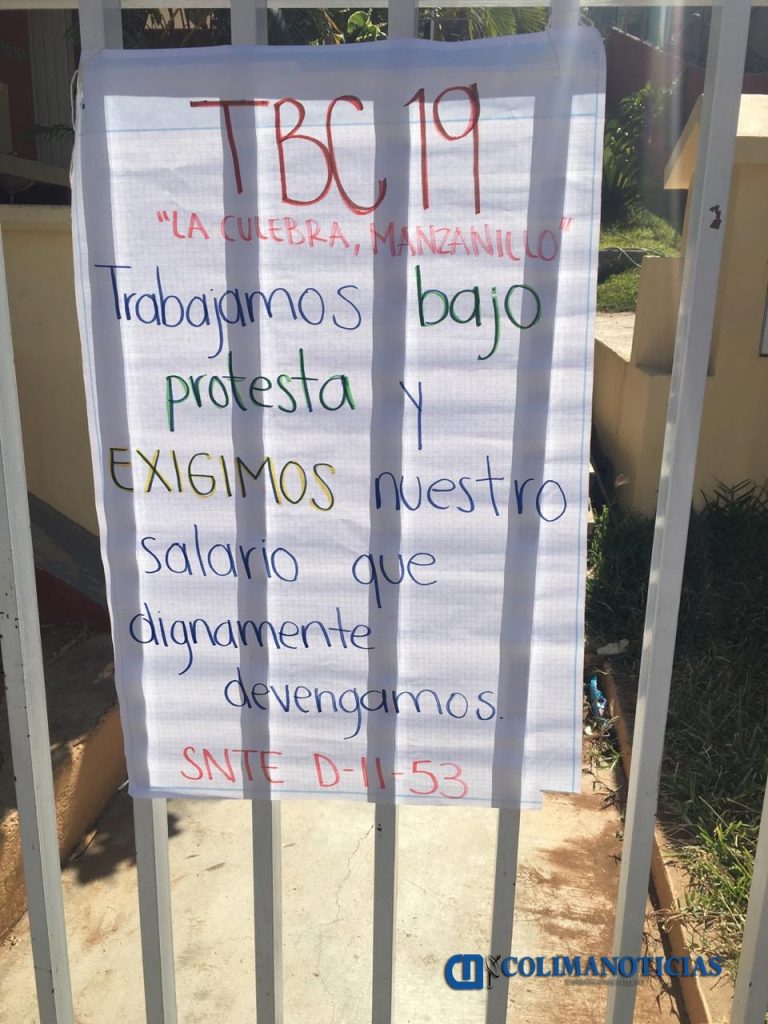 TBC 19
"LA CULEBRA, MANZANILLO"
Trabajamos bajo
protesta y
EXIGIMOS nuestro
salario que
dignamente
devengamos.
SNTE D-11-53
COLIMANOTICIAS